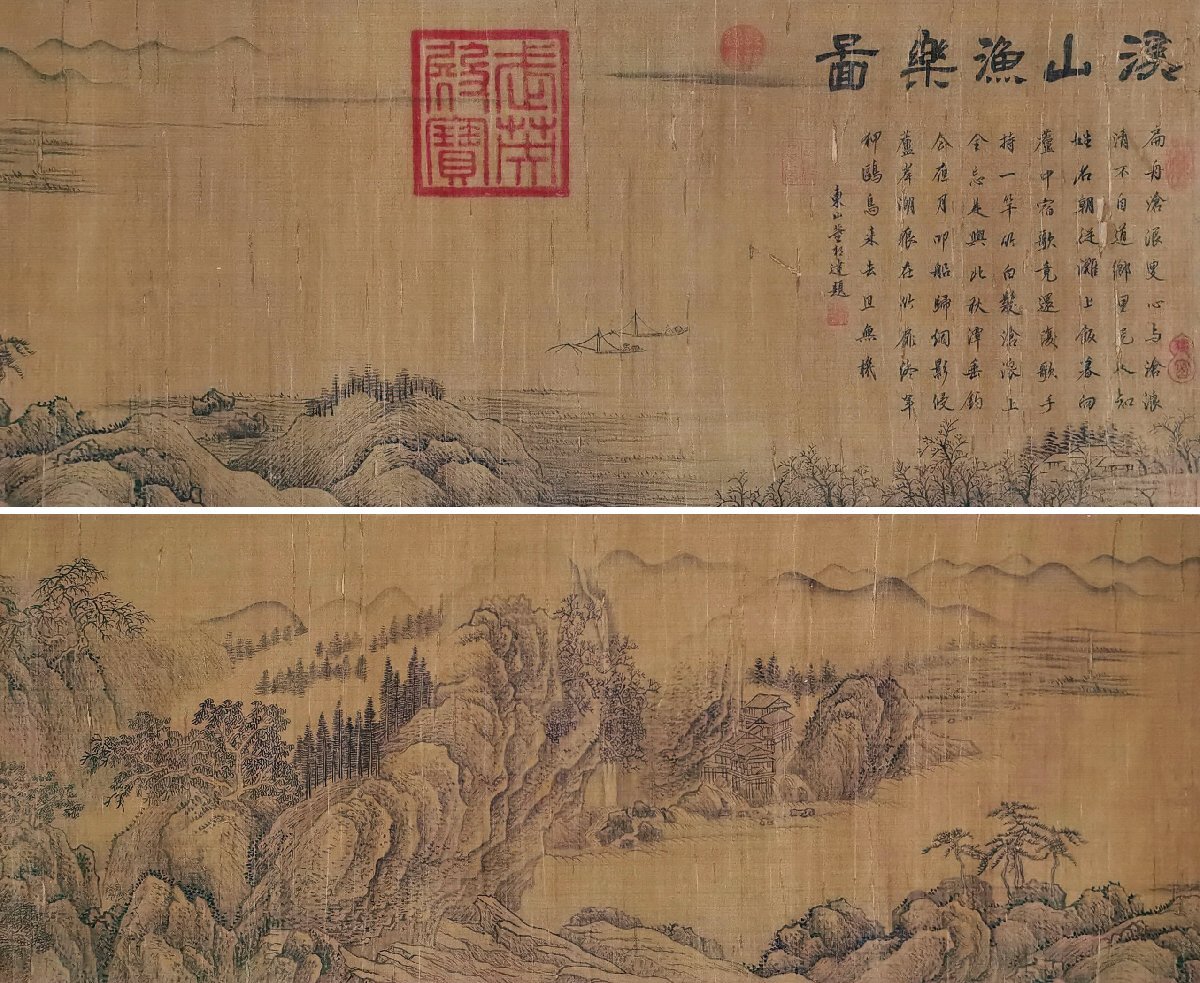 溪山漁樂圖
扁舟滄浪叟心与滄浪
清不自道鄉里无人知
姓名朝從灘上飯暮向
蘆中宿歌竟還復歌手
持一竿竹白髮滄浪上
全忘是與非秋潭垂釣
去夜月叩船歸烟影侵
蘆岸潮痕在竹扉終年
狎鷗鳥來去且無機
東山董邦達題
武英
殿寶